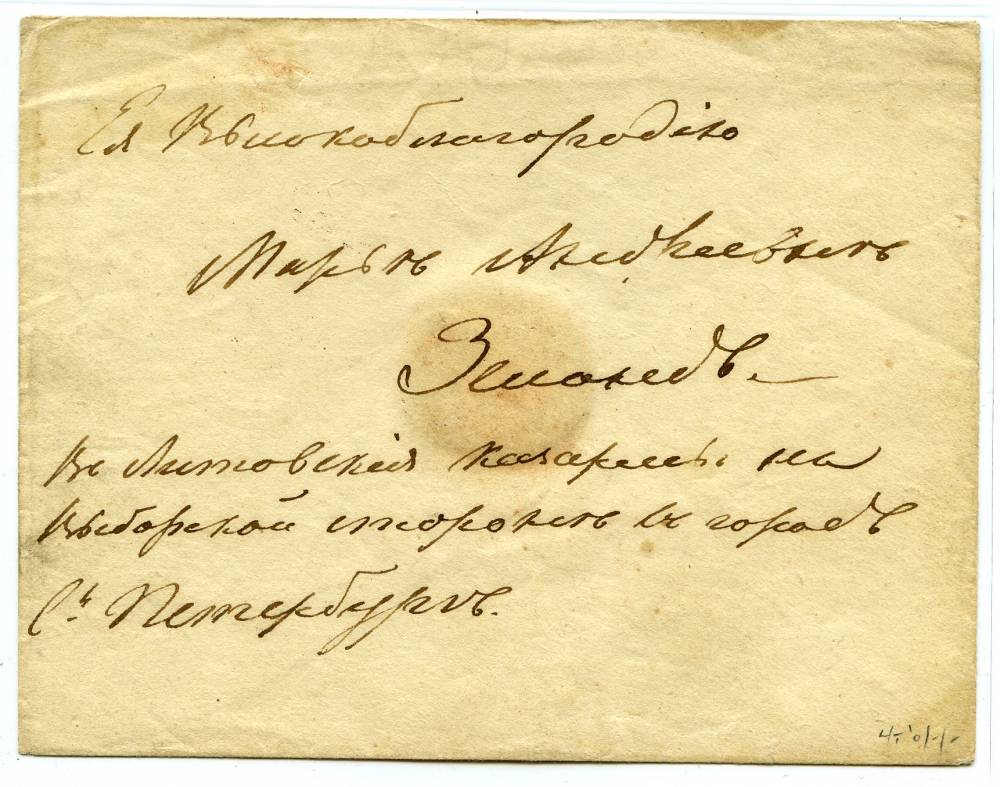 Ея Высокоблагородію
Марьѣ Андреевнѣ
Въ Литовскія казармы на
Выборской сторонѣ въ городѣ
С.ъ Петербургѣ.